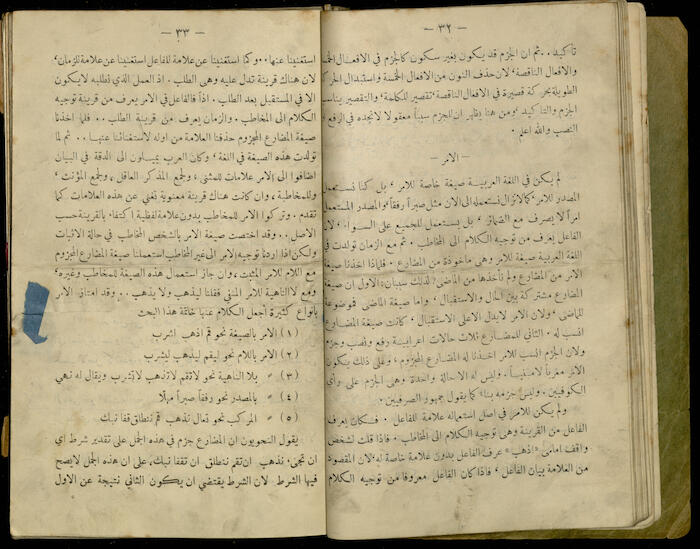 — ٣٢ —
تأكيد . . ثم ان الجزم قد يكون بغير سكون كالجزم في الافعال الخمسة
والافعال الناقصة ، لان حذف النون من الافعال الخمسة واستبدال الحركة
الطويلة بحركة قصيرة في الافعال الناقصة ، تقصير للكلمة ، والتقصير يناسب
الجزم والتأكيد . ومن هنا يظهر ان للجزم سبباً معقولا لا نجده في الرفع
النصب والله اعلم .
— الامر —
لم يكن في اللغة العربية صيغة خاصة للامر ، بل كنا نستعمل
المصدر للامر ، كما لا نزال نستعمله الى الان مثل صبراً رفقاً ، والمصدر المستعمل
امراً لا يصرف مع الضمائر ، بل يستعمل للجميع على السواء ، لان
الفاعل يعرف من توجيه الكلام الى المخاطب . ثم مع الزمان تولدت في
اللغة العربية صيغة للامر وهي مأخوذة من المضارع . فلماذا اخذنا صيغة
الامر من المضارع ولم نأخذها من الماضي ؛ لذلك سببان : الاول ان صيغة
المضارع مشتركة بين الحال والاستقبال ، واما صيغة الماضي فموضوعة
للماضي ، ولان الامر لا يدل الا على الاستقبال ، كانت صيغة المضارع
انسب له . الثاني للمضارع ثلاث حالات اعرابية رفع ونصب وجزم
ولان الجزم انسب للامر اخذنا له المضارع المجزوم ، وعلى ذلك يكون
الامر معرباً لا مبنياً . وليس له الا حالة واحدة وهي الجزم على رأي
الكوفيين . وليس جزمه بناء كما يقول جمهور الصرفيين .
ولم يكن للامر في اصل استعماله علامة للفاعل . فكان يعرف
الفاعل من القرينة وهي توجيه الكلام الى المخاطب . فاذا قلت لشخص
واقف امامي « اذهب » عرف الفاعل بدون علامة خاصة له ، لان المقصود
من العلامة بيان الفاعل ، فاذا كان الفاعل معروفاً من توجيه الكلام
— ٣٣ —
استغنينا عنها . . وكما استغنينا عن علامة للفاعل استغنينا عن علامة للزمان ،
لان هناك قرينة تدل عليه وهي الطلب . اذ العمل الذي نطلبه لا يكون
الا في المستقبل بعد الطلب . اذاً فالفاعل في الامر يعرف من قرينة توجيه
الكلام الى المخاطب . والزمان يعرف من قرينة الطلب . . فلما اخذنا
صيغة المضارع المجزوم حذفنا العلامة من اوله لاستغنائنا عنها . . ثم لما
تولدت هذه الصيغة في اللغة ، وكان العرب يميلون الى الدقة في البيان
اضافوا الى الامر علامات للمثنى ، ولجمع المذكر العاقل ، ولجمع المؤنث ،
وللمخاطبة ، وان كانت هناك قرينة معنوية تغني عن هذه العلامات كما
تقدم . وتركوا الامر للمخاطب بدون علامة لفظية اكتفاء بالقرينة حسب
الاصل . . وقد اختصت صيغة الامر بالشخص المخاطب في حالة الاثبات
ولكن اذا اردنا توجيه الامر الى غير المخاطب استعملنا صيغة المضارع المجزوم
مع اللام للامر المثبت ، وان جاز استعمال هذه الصيغة للمخاطب وغيره ،
ومع لا الناهية للامر المنفي فقلنا ليذهب ولا يذهب . . وقد امتاز الامر
بانواع كثيرة اجعل الكلام عنها خاتمة هذا البحث
( ١ ) الامر بالصيغة نحو قم اذهب اشرب
( ٢ ) الامر باللام نحو ليقم ليذهب ليشرب
( ٣ ) » بلا الناهية نحو لا تقم لا تذهب لا تشرب ويقال له نهي
( ٤ ) » بالمصدر نحو رفقاً صبراً مهلًا
( ٥ ) » المركب نحو تعال نذهب قم ننطلق قفا نبك
يقول النحويون ان المضارع جزم في هذه الجمل على تقدير شرط اي
ان تجيء نذهب ان تقم ننطلق ان تقفا نبك ، على ان هذه الجمل لا يصح
فيها الشرط لان الشرط يقتضي ان يكون الثاني نتيجة عن الاول